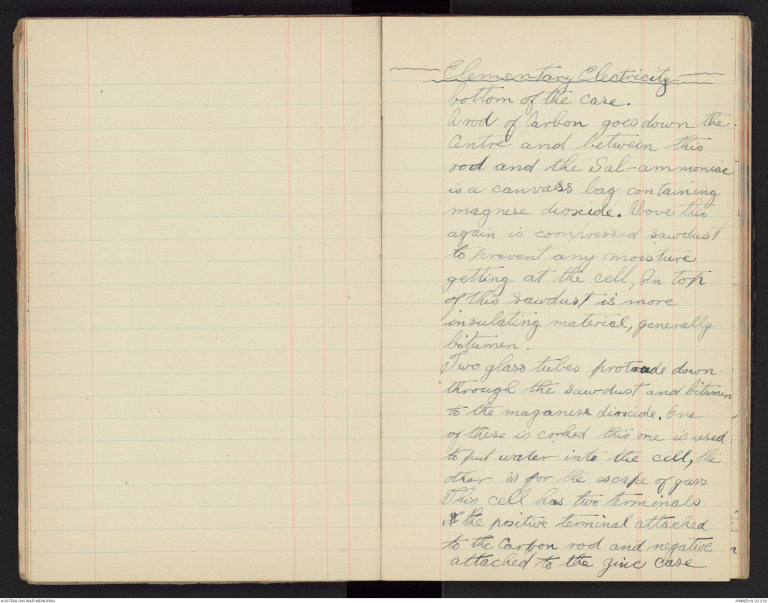 Elementary Electricity
bottom of the case.
A rod of Carbon goes down the
Centre and between this
rod and the Sal-ammoniac
is a canvass bag containing
magnese dioxide. Above this
again is compressed sawdust
to prevent any moisture
getting at the cell, On top
of this sawdust is more
insulating material, generally
bitumen.
Two glass tubes protrude down
through the sawdust and bitumen
to the maganese dioxide. One
of these is corked this one is used
to put water into the cell, the
other is for the escape of gass
This cell has two terminals
the positive terminal attached
to the Carbon rod and negative
attached to the zinc case
AUSTRALIAN WAR MEMORIAL